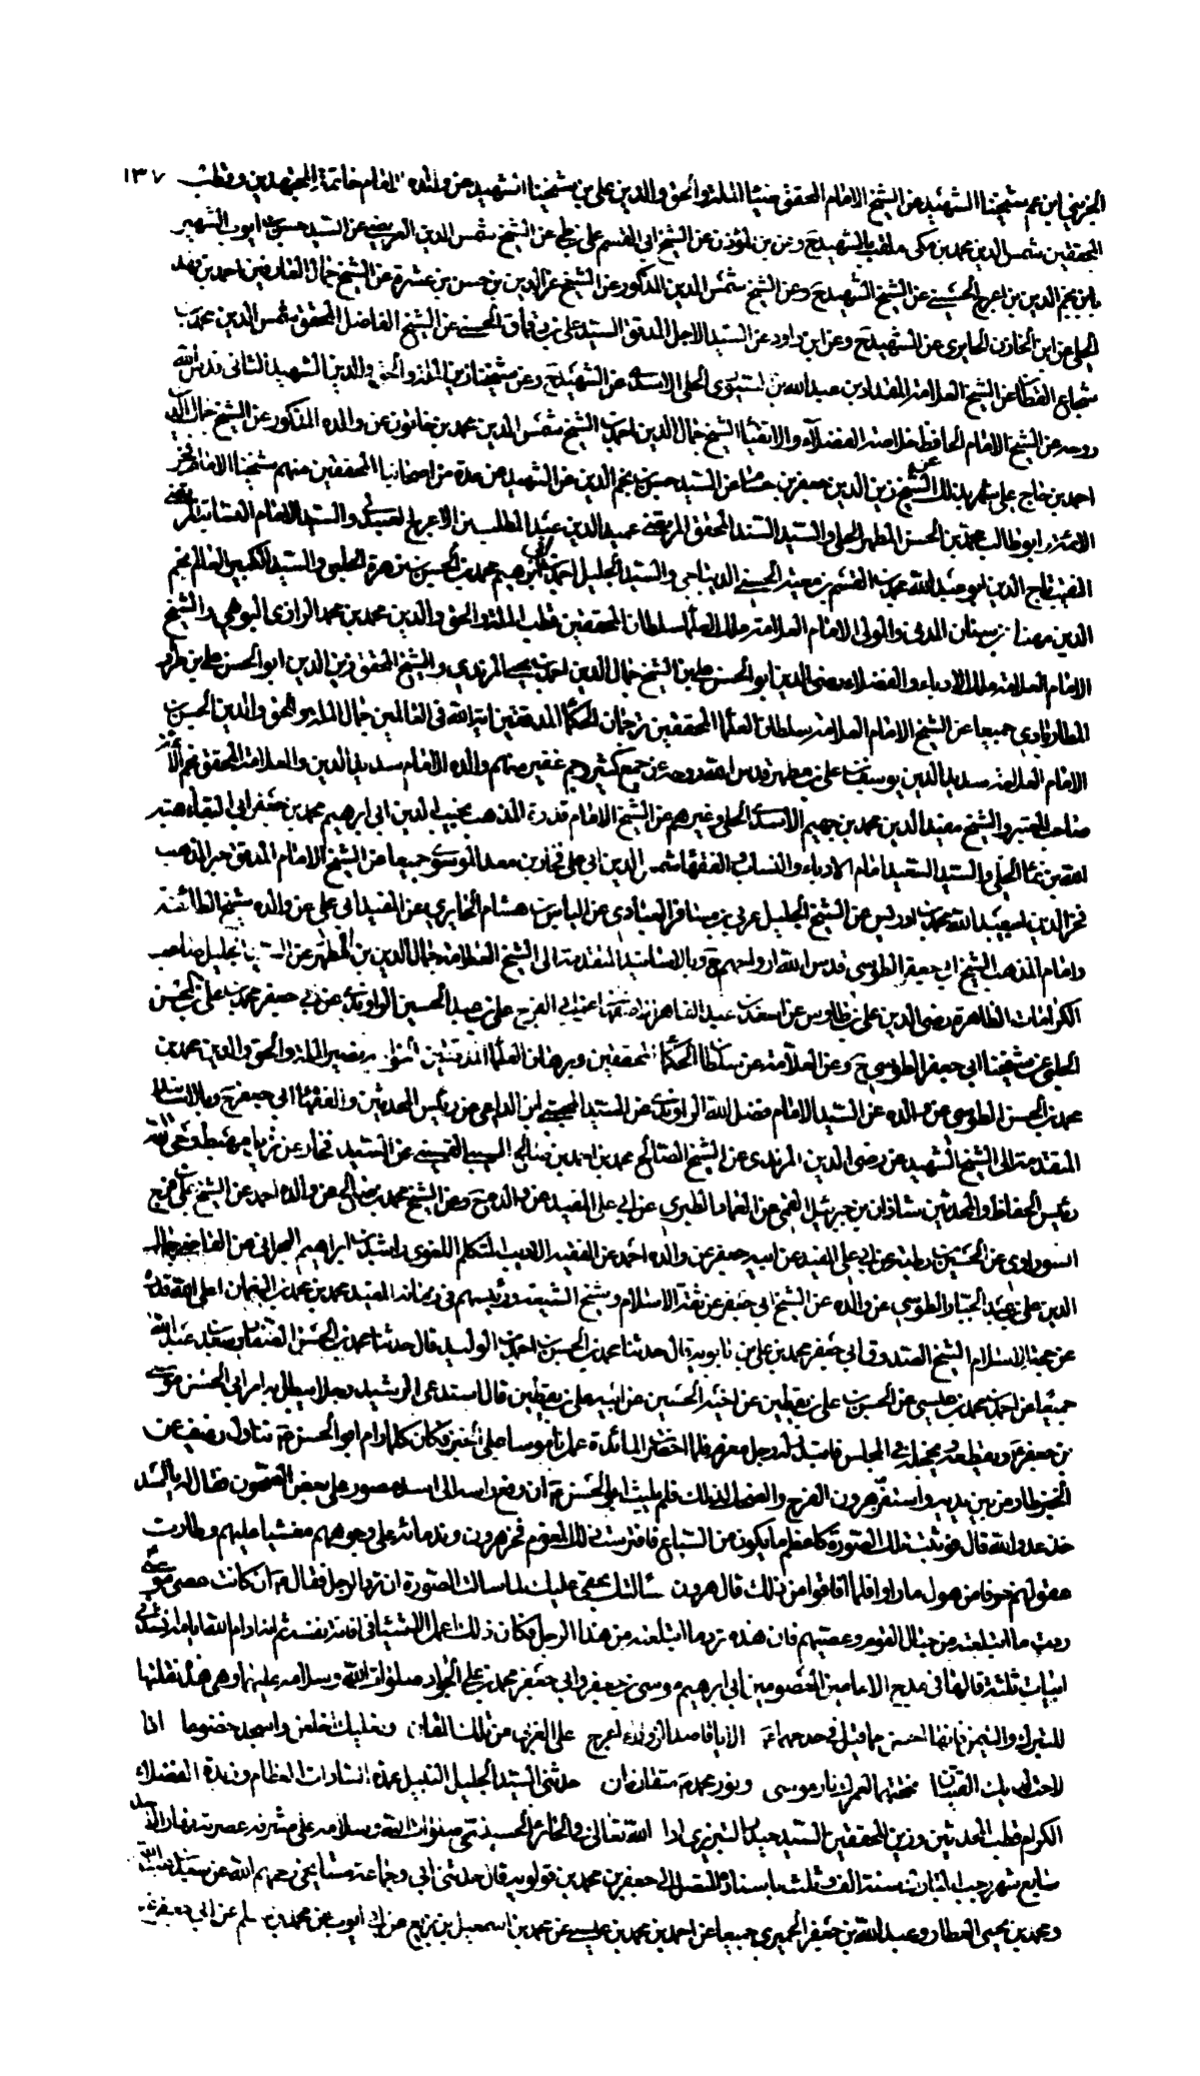 ١٣٧
الجزيني ابن عم شيخنا الشهيد عن الشيخ الامام المحقق ضياء الملة والحق والدين علي بن شيخنا الشهيد عن والده الامام خاتمة المجتهدين وقطب
المحققين شمس الدين محمد بن مكي ملقب بالشهيد ح وعن بن المؤذن عن الشيخ ابي القسم علي بن طي عن الشيخ شمس الدين العريضي عن السيد حسن بن ايوب الشهير
بابن نجم الدين بن اعرج الحسيني عن الشيخ الشهيد ح وعن الشيخ شمس الدين المذكور عن الشيخ عز الدين بن حسن بن عشرة عن الشيخ جمال العارفين احمد بن فهد
الحلي عن ابن الخازن الحايري عن الشهيد ح وعن ابن داود عن السيد الاجل المدقق السيد علي بن دقماق الحسني عن الشيخ الفاضل المحقق شمس الدين محمد بن
شجاع القطان عن الشيخ العلامة المقداد بن عبد الله بن السيوري الحلي الاسدي عن الشهيد ح وعن شيخنا زين الملة والحق والدين الشهيد الثاني قدس الله
روحه عن الشيخ الامام الحافظ خلاصة الفضلاء والاتقياء الشيخ جمال الدين احمد بن الشيخ شمس الدين محمد بن خاتون عن والده المذكور عن الشيخ جمال الدين
احمد بن حاج علي عن الشيخ زين الدين جعفر بن حسام عن السيد حسن بن نجم الدين عن الشهيد عن عدة من اصحابنا المحققين منهم شيخنا الامام فخر
ابو طالب محمد بن الحسن المطهر الحلي والسيد السند المحقق المرتضى عميد الدين عبد المطلب بن الاعرج الحسيني والسيد الامام العلامة
تاج الدين ابو عبد الله محمد بن القسم بن معية الحسيني الديباجي والسيد الجليل احمد بن ابي ابرهيم محمد بن الحسن بن زهرة الحلبي والسيد الكبير العالم نجم
الدين مهنا بن سنان المدني والمولى الامام العلامة ملك العلماء سلطان المحققين قطب الملة والحق والدين محمد بن محمد الرازي البويهي والشيخ
الامام العلامة ملك الادباء والفضلاء رضي الدين ابو الحسن علي بن الشيخ جمال الدين احمد بن يحيى المزيدي والشيخ المحقق زين الدين ابو الحسن علي بن طراد
المطارابادي جميعا عن الشيخ الامام العلامة سلطان العلماء المحققين ترجمان الحكماء المدققين اية الله في العالمين جمال الملة والحق والدين الحسن بن
الامام العلامة سديد الدين يوسف بن علي بن مطهر قدس الله روحه عن جمع كثير وجم غفير منهم والده الامام سديد الدين والعلامة المحقق نجم الأئمة
صاحب المعتبر والشيخ مفيد الدين محمد بن جهيم الاسدي الحلي وغيرهم عن الشيخ الامام قدوة المذهب نجيب الدين ابي ابرهيم محمد بن جعفر ابي البقاء هبة
الله بن نما الحلي والسيد السعيد امام الادباء والنساب والفقهاء شمس الدين ابي علي فخار بن معد الموسوي جميعا عن الشيخ الامام المدقق حبر المذهب
فخر الدين ابي عبد الله محمد بن ادريس عن الشيخ الجليل عربي بن مسافر العبادي عن الياس بن هشام الحايري عن المفيد ابي علي عن والده شيخ الطائفة
وامام المذهب الشيخ ابي جعفر الطوسي قدس الله ارواحهم ح وبالاسانيد المتقدمة الى الشيخ العلامة جمال الدين بن المطهر عن السيد الجليل صاحب
الكرامات الظاهرة رضي الدين علي بن طاوس عن اسعد بن عبد القاهر الاصفهاني عن ابي الفرج علي بن عبد الحسين الراوندي عن ابي جعفر محمد بن علي بن الحسن
الحلبي عن شيخنا ابي جعفر الطوسي ح وعن العلامة عن سلطان الحكماء المحققين وبرهان العلماء المدققين نصير الملة والحق والدين محمد بن
محمد بن الحسن الطوسي عن والده عن السيد الامام فضل الله الراوندي عن السيد المجتبى ابن الداعي عن رئيس المحدثين والفقهاء ابي جعفر ح وبالاسناد
المتقدمة الى الشيخ الشهيد عن رضي الدين المزيدي عن الشيخ الصالح محمد بن احمد بن صالح السيبي القسيني عن السيد فخار عن
رئيس الحفاظ والمحدثين شاذان بن جبرئيل القمي عن العماد الطبري عن ابي علي المفيد عن والده ح وعن الشيخ محمد بن صالح عن والده احمد عن الشيخ علي بن فرج
السوراوي عن الحسين بن رطبة عن ابي علي المفيد عن ابيه جعفر عن والده احمد عن الفقيه الاديب المتكلم اللغوي راشد بن ابراهيم البحراني عن القاضي جمال
الدين علي بن عبد الجبار الطوسي عن والده عن الشيخ ابي جعفر عن ثقة الاسلام وشيخ الشيعة ورئيسهم في زمانه المفيد محمد بن محمد بن النعمان اعلى الله قدره
عن حجة الاسلام الشيخ الصدوق ابي جعفر محمد بن علي بن بابويه قال حدثنا محمد بن الحسن بن احمد بن الوليد قال حدثنا محمد بن الحسن الصفار وسعد بن عبد الله
جميعا عن احمد بن محمد بن عيسى عن الحسن بن علي بن يقطين عن اخيه الحسين عن ابيه علي بن يقطين قال استدعى الرشيد رجلا يبطل به امر ابي الحسن موسى
بن جعفر ع ويقطعه ويخجله في المجلس فانتدب له رجل معزم فلما احضرت المائدة عمل ناموسا على الخبز فكان كلما رام ابو الحسن ع تناول رغيف من
الخبز طار من بين يديه واستفز هرون الفرح والضحك لذلك فلم يلبث ابو الحسن ع ان رفع راسه الى اسد مصور على بعض الستور فقال له يا اسد
خذ عدو الله قال فوثبت تلك الصورة كاعظم ما يكون من السباع فافترست ذلك المعزم فخر هرون وندمائه على وجوههم مغشيا عليهم وطارت
عقولهم خوفا من هول ما راوا فلما افاقوا من ذلك قال هرون سألتك بحقي عليك لما سالت الصورة ان ترد الرجل فقال ع ان كانت عصى موسى
ردت ما ابتلعته من حبال القوم وعصيهم فان هذه ترد ما ابتلعته من هذا الرجل فكان ذلك اعمل الاشياء في افاتة نفسه
ابيات ثلثة قالها في مدح الامامين المعصومين ابي ابرهيم موسى بن جعفر وابي جعفر محمد بن علي الجواد صلوات الله وسلامه عليهما وهي هذه نقلتها
للتبرك والتيمن فانها احسن ما قيل في مدحهما ع الا يا قاصد الزوراء عرج على الغربي من تلك المغاني ونعليك اخلعن واسجد خضوعا اذا
لاحت لديك القبتان فتحتهما لعمرك نار موسى ونور محمد متقارنان حدثني السيد الجليل النبيل عمدة السادات العظام وزبدة الفضلاء
الكرام قطب المحدثين وزين المحققين السيد حيدر التبريزي ادام الله تعالى والحائر الحسيني صلوات الله وسلامه على مشرفه عصرية نهار الاحد
سابع شهر رجب المبارك سنة الف وثلث باسناده المتصل الى جعفر بن محمد بن قولويه قال حدثني ابي وجماعة مشايخي رحمهم الله عن سعد بن عبد الله
ومحمد بن يحيى العطار وعبد الله بن جعفر الحميري جميعا عن احمد بن محمد بن عيسى عن محمد بن اسمعيل بن بزيع عن ابي ايوب عن محمد بن مسلم عن ابي جعفر ع